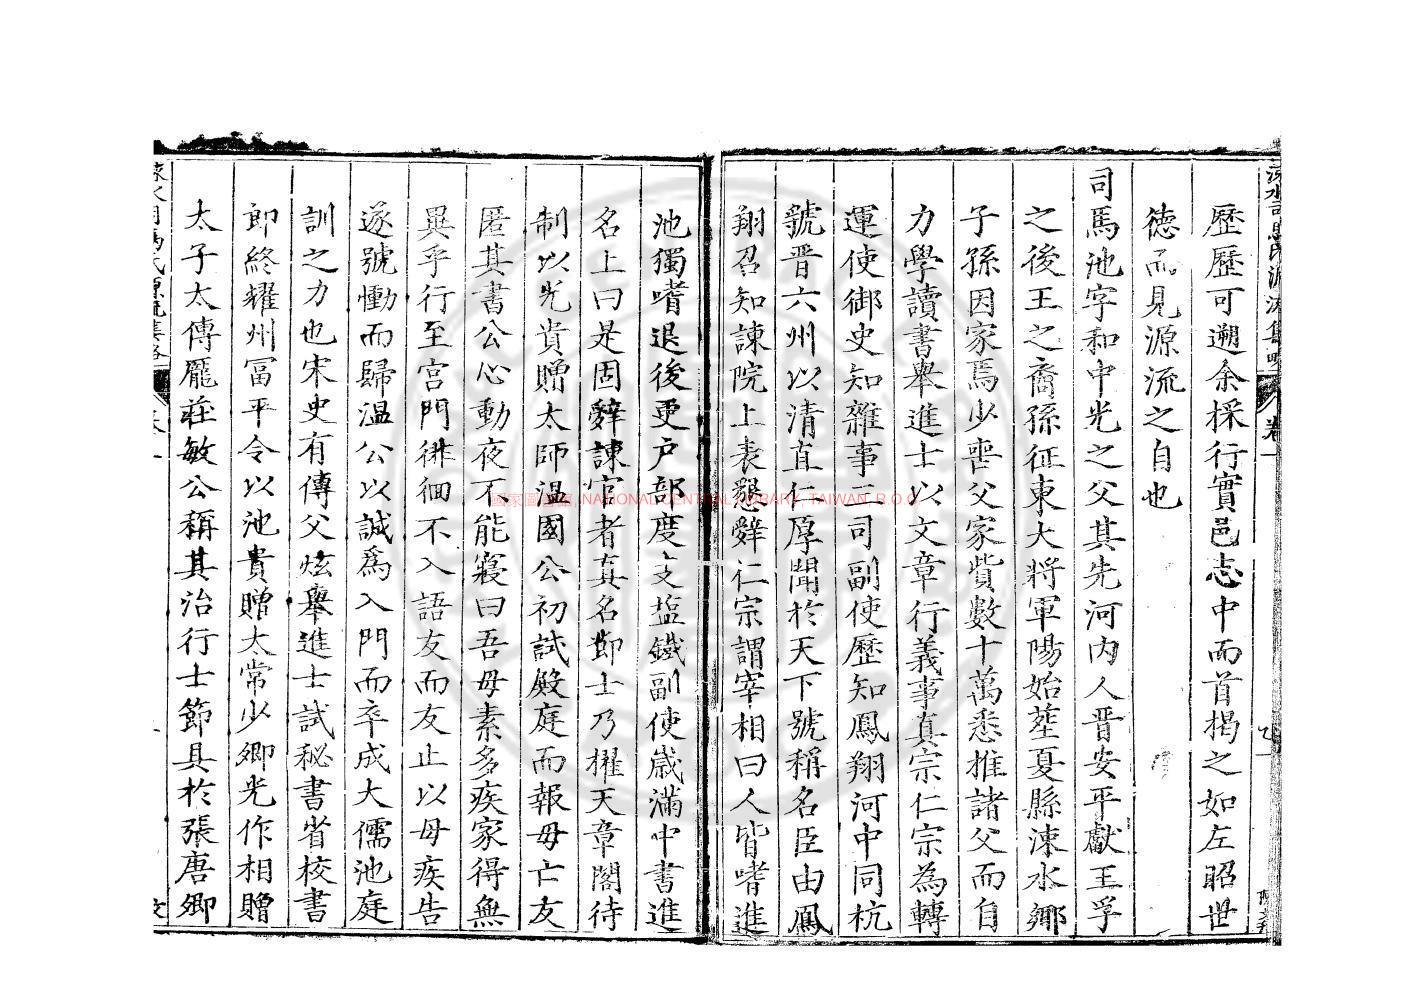 歷歷可遡余採行實邑志中而首揭之如左昭世
德而見源流之自也
司馬池字和中光之父其先河内人晋安平獻王孚
之後王之裔孫征東大將軍陽始塟夏縣涑水鄉
子孫因家焉少喪父家貲數十萬悉推諸父而自
力學讀書舉進士以文章行義事真宗仁宗為轉
運使御史知雜事三司副使歷知鳳翔河中同杭
虢晋六州以清直仁厚聞於天下號稱名臣由鳳
翔召知諫院上表懇辤仁宗謂宰相曰人皆嗜進
池獨嗜退後更户部度支塩鐵副使歲滿中書進
名上曰是固辤諫官者真名節士乃擢天章閣待
制以光貴贈太師温國公初試殿庭而報母亡友
匿其書公心動夜不能寝曰吾母素多疾家得無
異乎行至宫門徘徊不入語友而友止以母疾告
遂號慟而歸温公以誠為入門而卒成大儒池庭
訓之力也宋史有傳父炫舉進士試秘書省校書
郎終耀州冨平令以池貴贈太常少卿光作相贈
太子太傅龎莊敏公稱其治行士節具於張唐卿
涑水司馬氏源流集略 卷一
涑水司馬氏源流集略
國家圖書館 NATIONAL CENTRAL LIBRARY, TAIWAN, R.O.C